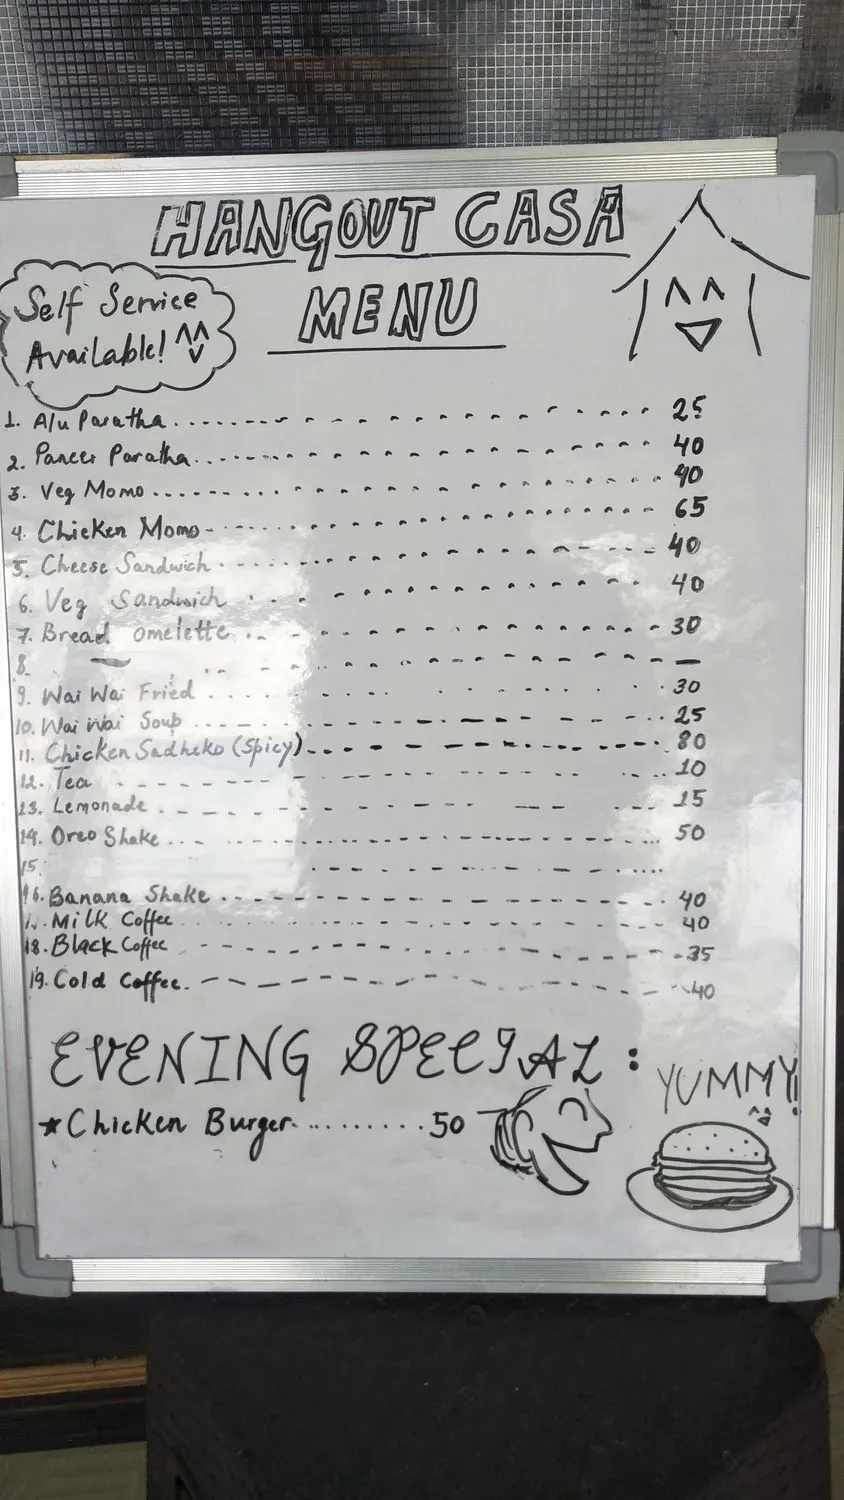 HANGOUT CASA
MENU
Self Service
Available!
1. Alu Paratha 25
2. Paneer Paratha 40
3. Veg Momo 40
4. Chicken Momo 65
5. Cheese Sandwich 40
6. Veg Sandwich 40
7. Bread omelette 30
8.
9. Wai Wai Fried 30
10. Wai Wai Soup 25
11. Chicken Sadheko (Spicy) 80
12. Tea 10
13. Lemonade 15
14. Oreo Shake 50
15.
16. Banana Shake 40
Milk Coffee 40
18. Black Coffee 35
19. Cold Coffee. 40
EVENING SPECIAL :
★ Chicken Burger 50
YUMMY!